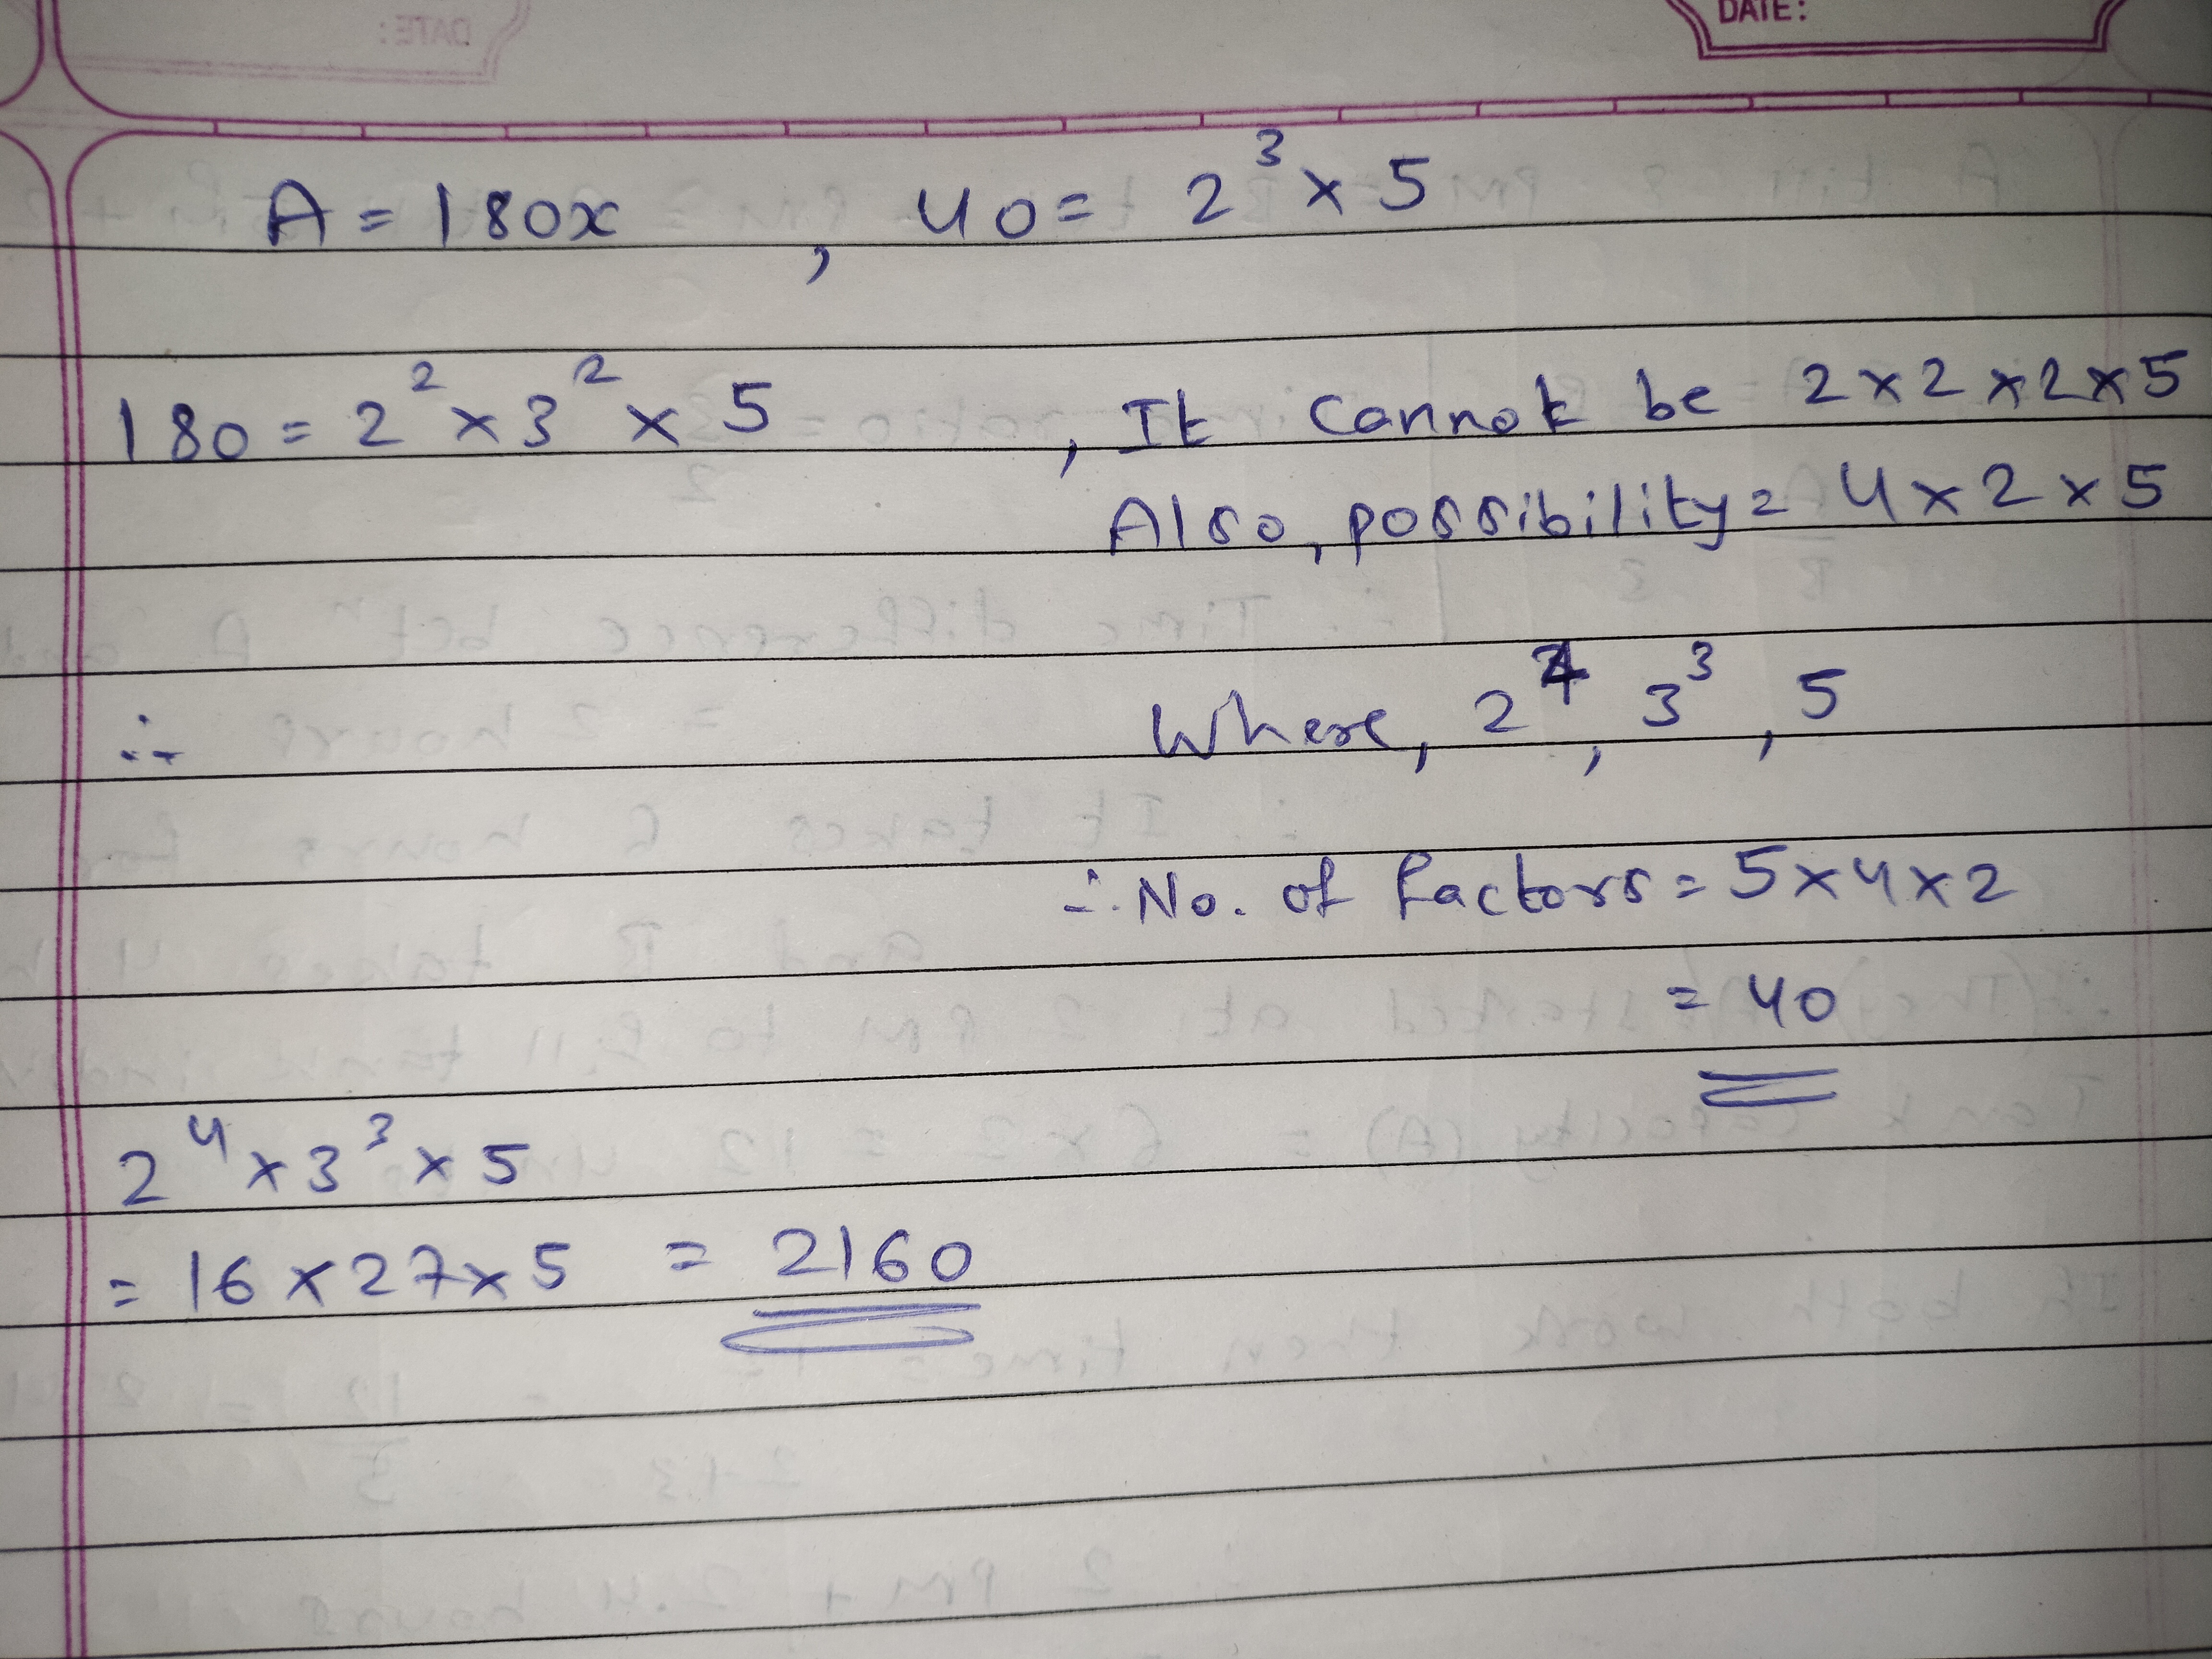 DATE:
A = 180x , 40 = 2³ × 5
180 = 2² × 3² × 5 , It cannot be 2 × 2 × 2 × 5
Also, possibility = 4 × 2 × 5
∴ Where, 2⁴, 3³, 5
∴ No. of factors = 5 × 4 × 2
= 40
2⁴ × 3³ × 5
= 16 × 27 × 5 = 2160